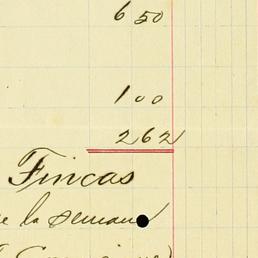 6 50
1 00
262
Fincas
la semana